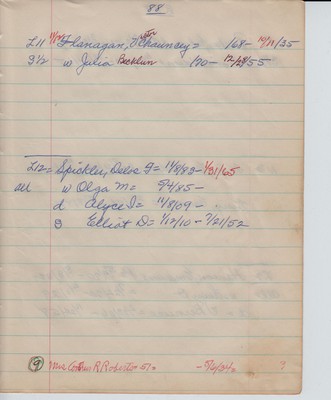 88
L11 Flanagan, Chauncey = 168- 10/11/35
S 1/2 w Julia Becklun 170- 12/28/55
L12= Spickley, Delos G= 11/9/83- 1/31/65
all w Olga M= 9/4/85-
d Alyce I= 11/8/09-
S Elliot D= 1/12/10- 7/21/52
9 Mrs R Roberts - 5/6/34 ?